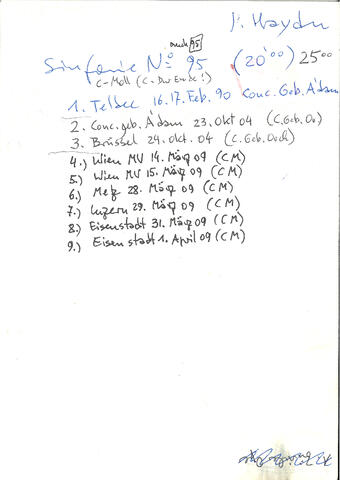 J. Haydn
auch 95
Sinfonie No 95 (20'00) 25'00
C-Moll (C-Dur Ende!)
1. Teldec 16.17. Feb. 90 Conc. Geb. A'dam
2. Conc. geb. A'dam 23. Okt 04 (C. Geb. Oo)
3. Brüssel 24. Okt. 04 (C. Geb. Orch)
4.) Wien MV 14. März 09 (CM)
5.) Wien MV 15. März 09 (CM)
6.) Metz 28. März 09 (CM)
7.) Luzern 29. März 09 (CM)
8.) Eisenstadt 31. März 09 (CM)
9.) Eisenstadt 1. April 09 (CM)